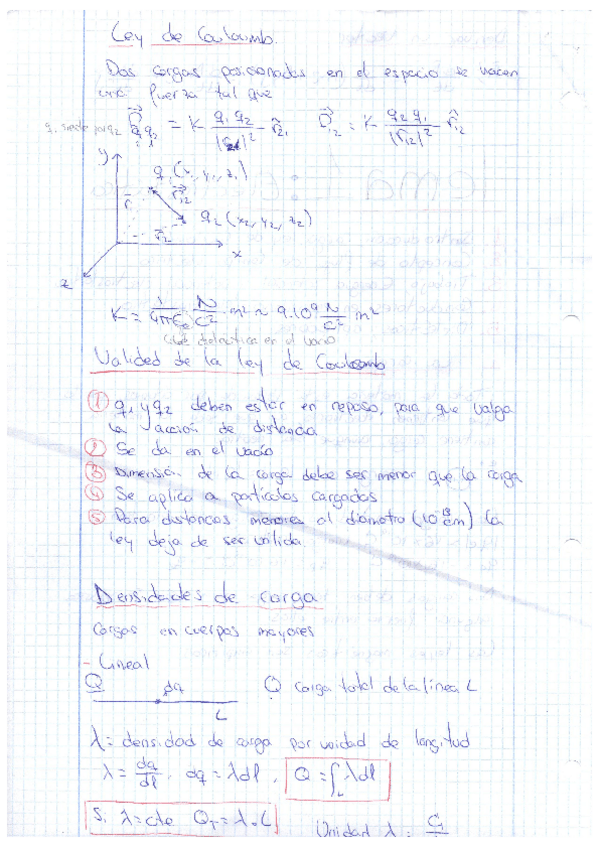 Ley de Couloumb.
Dos cargas posicionadas en el espacio se hacen
una fuerza tal que
q₁ siente por q₂ F⃗q₁q₂ = K q₁ q₂ / |r₂₁|² r̂₂₁ F⃗₁₂ = K q₂ q₁ / |r₁₂|² r̂₁₂
y q₁(x₁, y₁, z₁)
r⃗₁ r⃗₁₂
q₂ (x₂, y₂, z₂)
r⃗₂
x
z
K = 1/4πε₀ N/C² m² ≈ 9.10⁹ N/C² m²
cte dieléctrica en el vacío
Valided de la ley de Couloumb
① q₁ y q₂ deben estar en reposo, para que valga
la acción de distancia
② Se da en el vacío
③ Dimensión de la carga debe ser menor que la carga
④ Se aplica a partículas cargadas
⑤ Para distancias menores al diámetro (10 cm) la
ley deja de ser válida.
Densidades de carga
Cargas en cuerpos mayores
- Lineal
Q dq Q carga total de la línea L
L
λ = densidad de carga por unidad de longitud
λ = dq/dl, dq = λdl, Q = ∫L λdl
Si λ = cte Q_T = λ.L Unidad λ = C